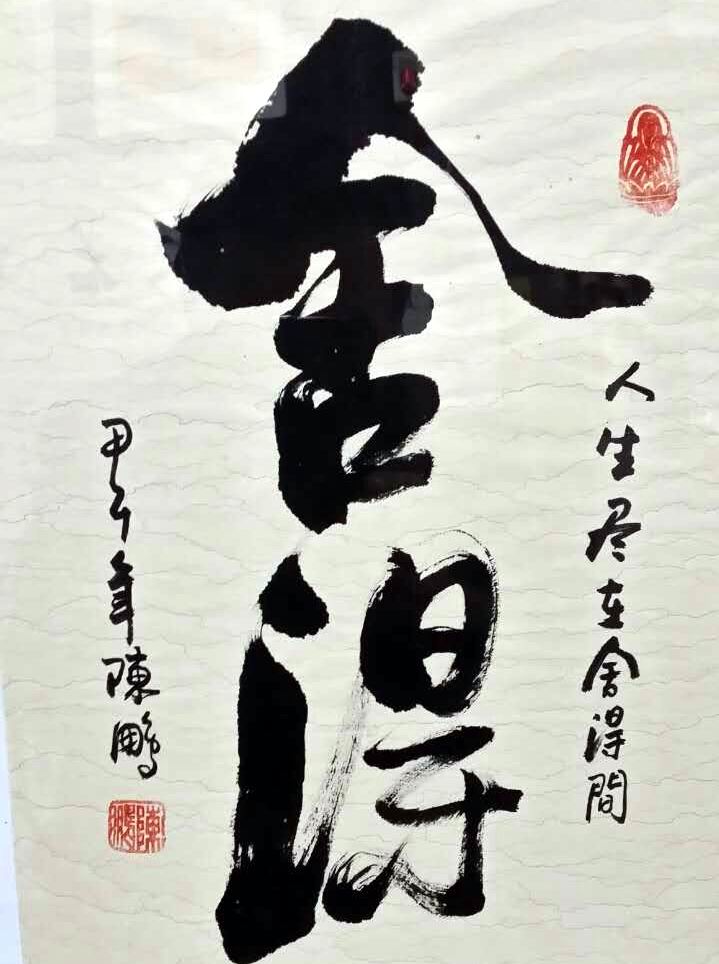 舍得
人生尽在舍得間
甲午年陳鵬
陳鵬